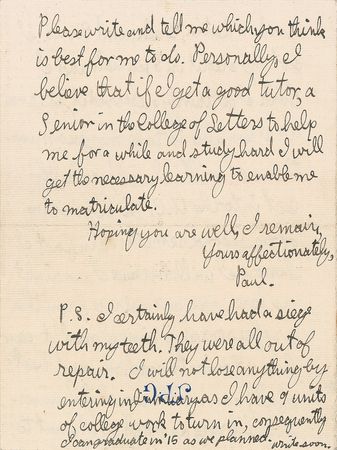 Please write and tell me which you think
is best for me to do. Personally, I
believe that if I get a good tutor, a
Senior in the College of Letters to help
me for a while and study hard I will
get the necessary learning to enable me
to matriculate.
Hoping you are well, I remain,
Yours affectionately,
Paul.
P.S. I certainly have had a siege
with my teeth. They were all out of
repair. I will not lose anything by
entering in January as I have 9 units
of college work to turn in, consequently
I can graduate in '15 as we planned. Write soon.